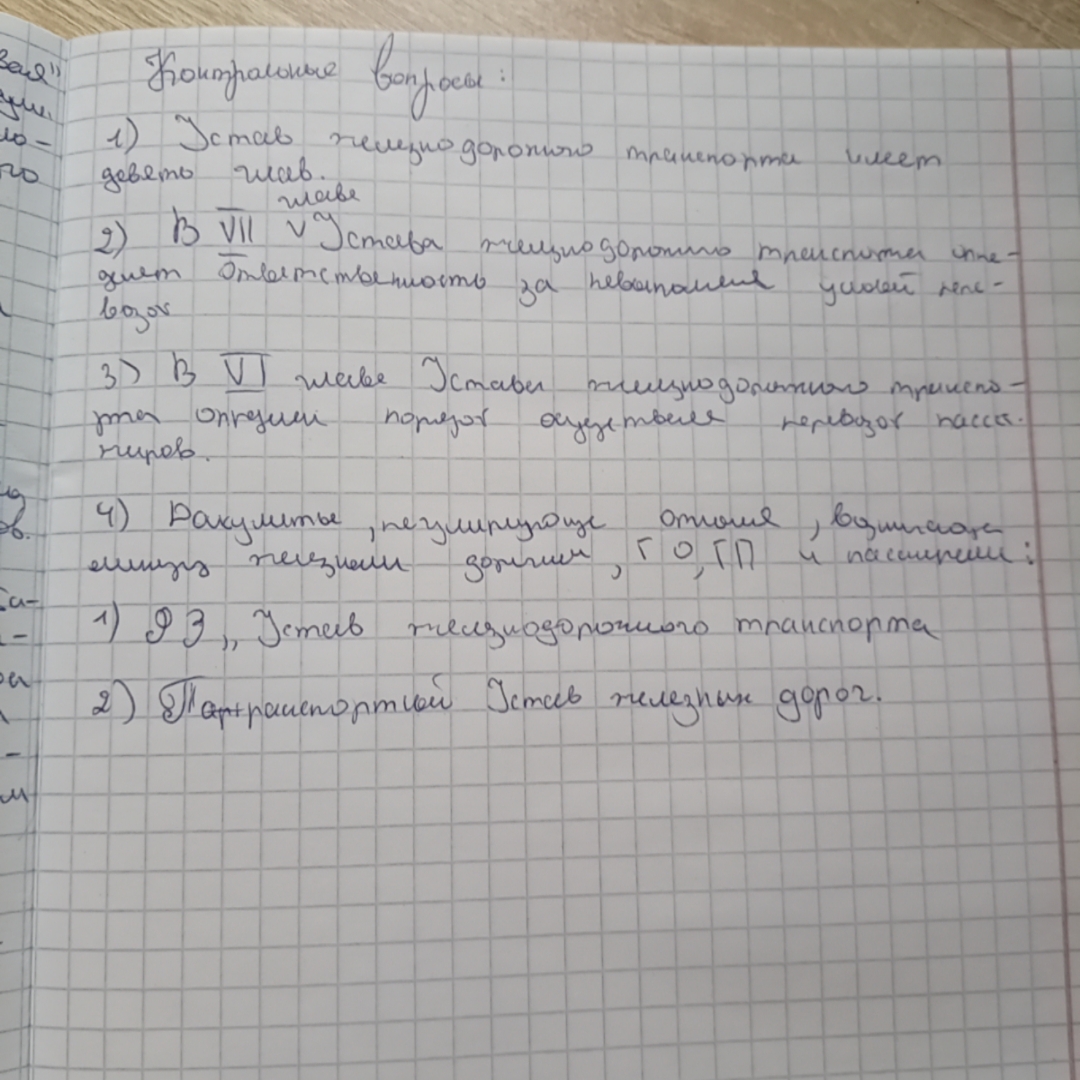 Контрольные вопросы:
1) Устав железнодорожного транспорта имеет
девять глав.
главе
2) В VII V Устава железнодорожного транспорта опре-
делит Ответственность за невыполнение условий пере-
возок
3) В VI главе Устава железнодорожного транспо-
рта определ порядок осуществления перевозок пасса-
жиров.
4) Документы, регулирующие отношения, возникающ
между железными дорогами, ГО, ГП и пассажирами:
1) ФЗ „Устав железнодорожного транспорта
2) Транспортный Устав железных дорог.